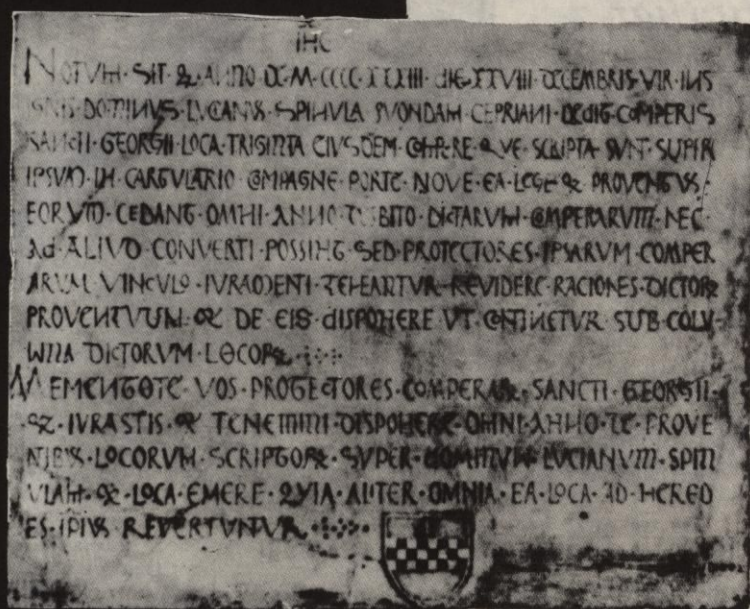 IHC
NOTVM · SIT · QꝪ · ANNO · DE · M · CCCC · XXXIII · DIE · XXVIII · DECEMBRIS · VIR · INS
IGNIS · DOMINVS · LVCANVS · SPINVLA · QVONDAM · CEPRIANI · DEDIT · COMPERIS
SANCTI · GEORGII · LOCA · TRIGINTA · EIVSDEM · COMPERE · QVE · SCRIPTA · SVNT · SVPER
IPSVM · IN · CARTVLARIO · COMPAGNE · PORTE · NOVE · EA · LEGE · QꝪ · PROVENTVS ·
EORVM · CEDANT · OMNI · ANNO · DEBITO · DICTARVM · COMPERARVM · NEC ·
Ad · ALIVD · CONVERTI · POSSINT · SED · PROTECTORES · IPSARVM · COMPER
ARVM · VINCVLO · IVRAMENTI · TENEANTVR · REVIDERE · RACIONES · DICTORꝪ
PROVENTVUM · QꝪ · DE · EIS · dISPONERE · VT · CONTINETVR · SUB · COLV
DICTORVM · LOCORꝪ
MEMENTOTE · VOS · PROTECTORES · COMPERARꝪ · SANCTI · GEORGII ·
· QꝪ · IVRASTIS · QꝪ · TENEMINI · DISPONERE · OMNI · ANNO · DE · PROVE
NTIBVS · LOCORVM · SCRIPTORꝪ · SVPER · DOMINVM · LVCIANVM · SPIN
VLAM · QꝪ · LOCA · EMERE · QVIA · ALITER · OMNIA · EA · LOCA · AD · HERED
ES · IPIVS · REVERTVNTVR